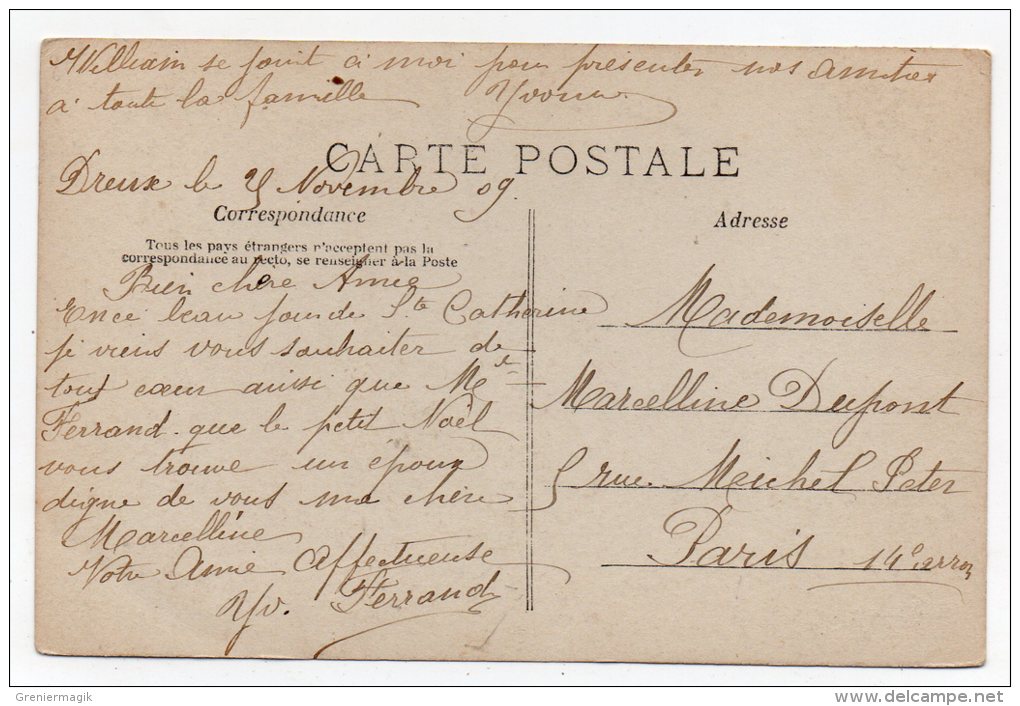 William se joint à moi pour présenter nos amitiés
à toute la famille Yvonne
CARTE POSTALE
Dreux le 25 Novembre 09.
Correspondance
Tous les pays étrangers n'acceptent pas la
correspondance au recto, se renseigner à la Poste
Bien chère Amie
En ce beau jour de Ste Catherine
je viens vous souhaiter de
tout cœur ainsi que Me
Ferrand que le petit Noël
vous trouve un époux
digne de vous ma chère
Marcelline
Votre Amie Affectueuse
Yv. Ferrand
Adresse
Mademoiselle
Marcelline Dupont
5 rue Meichel Peter
Paris 14e arron
Greniermagik
www.delcampe.net